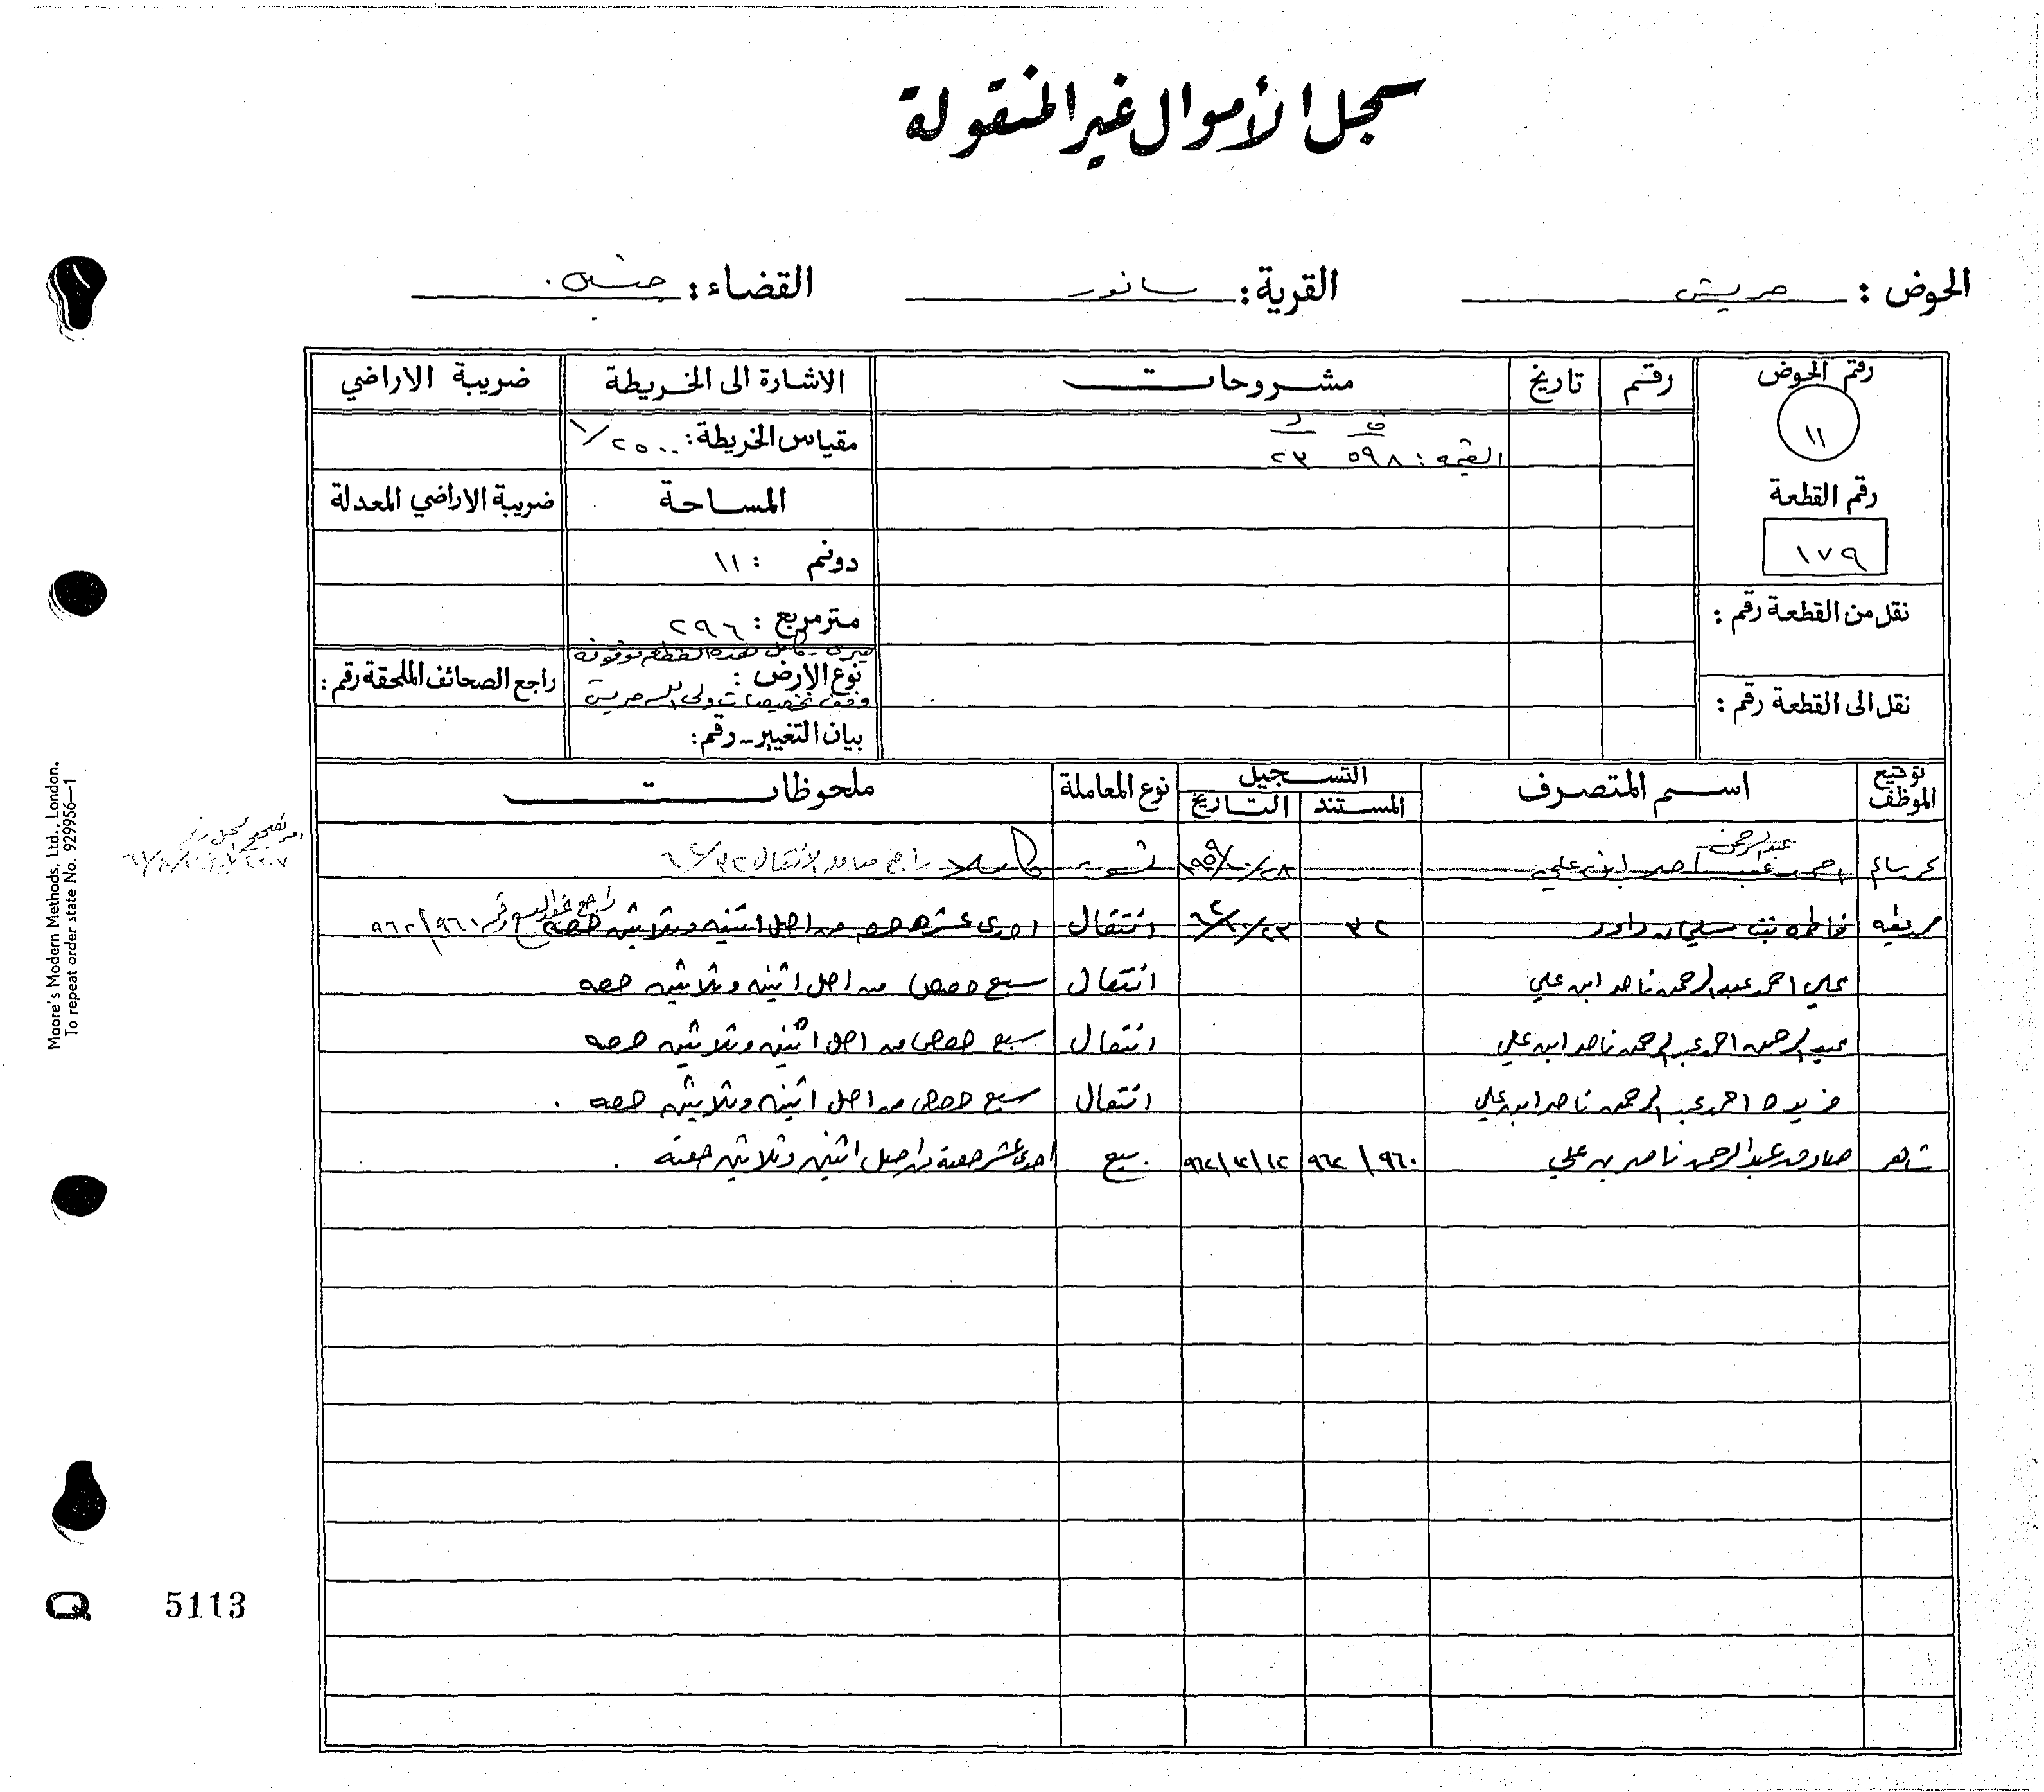 سجل الأموال غير المنقولة
الحوض : حريش القرية : سانور القضاء : جنين
رقم الحوض رقم تاريخ مشروحات الاشارة الى الخريطة ضريبة الاراضي
١١
ف د
القيمة : ٥٩٨ ٢٣
مقياس الخريطة : ١/٢٥٠٠
رقم القطعة
١٧٩
المساحة ضريبة الاراضي المعدلة
دونم : ١١
نقل من القطعة رقم :
مترمربع : ٢٩٦
ميري - كامل هذه القطعة موقوفة
نوع الارض : راجع الصحائف الملحقة رقم :
وقف تخصيصات ولي الله حريش
نقل الى القطعة رقم :
بيان التغيير - رقم :
توقيع الموظف اسم المتصرف التسجيل نوع المعاملة ملحوظات
المستند التاريخ
عبد الرحمن
احمد ناصر ابن علي ٢٨/١٠/٩٥٩ تسوية كاملا راجع معاملة الانتقال ٣٢/٦٢
فاطمه بنت سليمان داود ٣٢ ٢٣/١٠/٦٢ انتقال احدى عشر حصه من اصل اثنين وثلاثين حصه راجع عقد البيع رقم ٩٦٠/٩٦٢
علي احمد عبد الرحمن ناصر ابن علي انتقال سبع حصص من اصل اثنين وثلاثين حصه
عبد الرحمن احمد عبد الرحمن ناصر ابن علي انتقال سبع حصص من اصل اثنين وثلاثين حصه
فريده احمد عبد الرحمن ناصر ابن علي انتقال سبع حصص من اصل اثنين وثلاثين حصه .
شاهر صادق عبد الرحمن ناصر بن علي ٩٦٠/٩٦٢ ١٢/١٢/٩٦٢ بيع احدى عشر حصة من اصل اثنين وثلاثين حصة .
Moore's Modern Methods, Ltd., London.
To repeat order state No. 929956—1
Q 5113